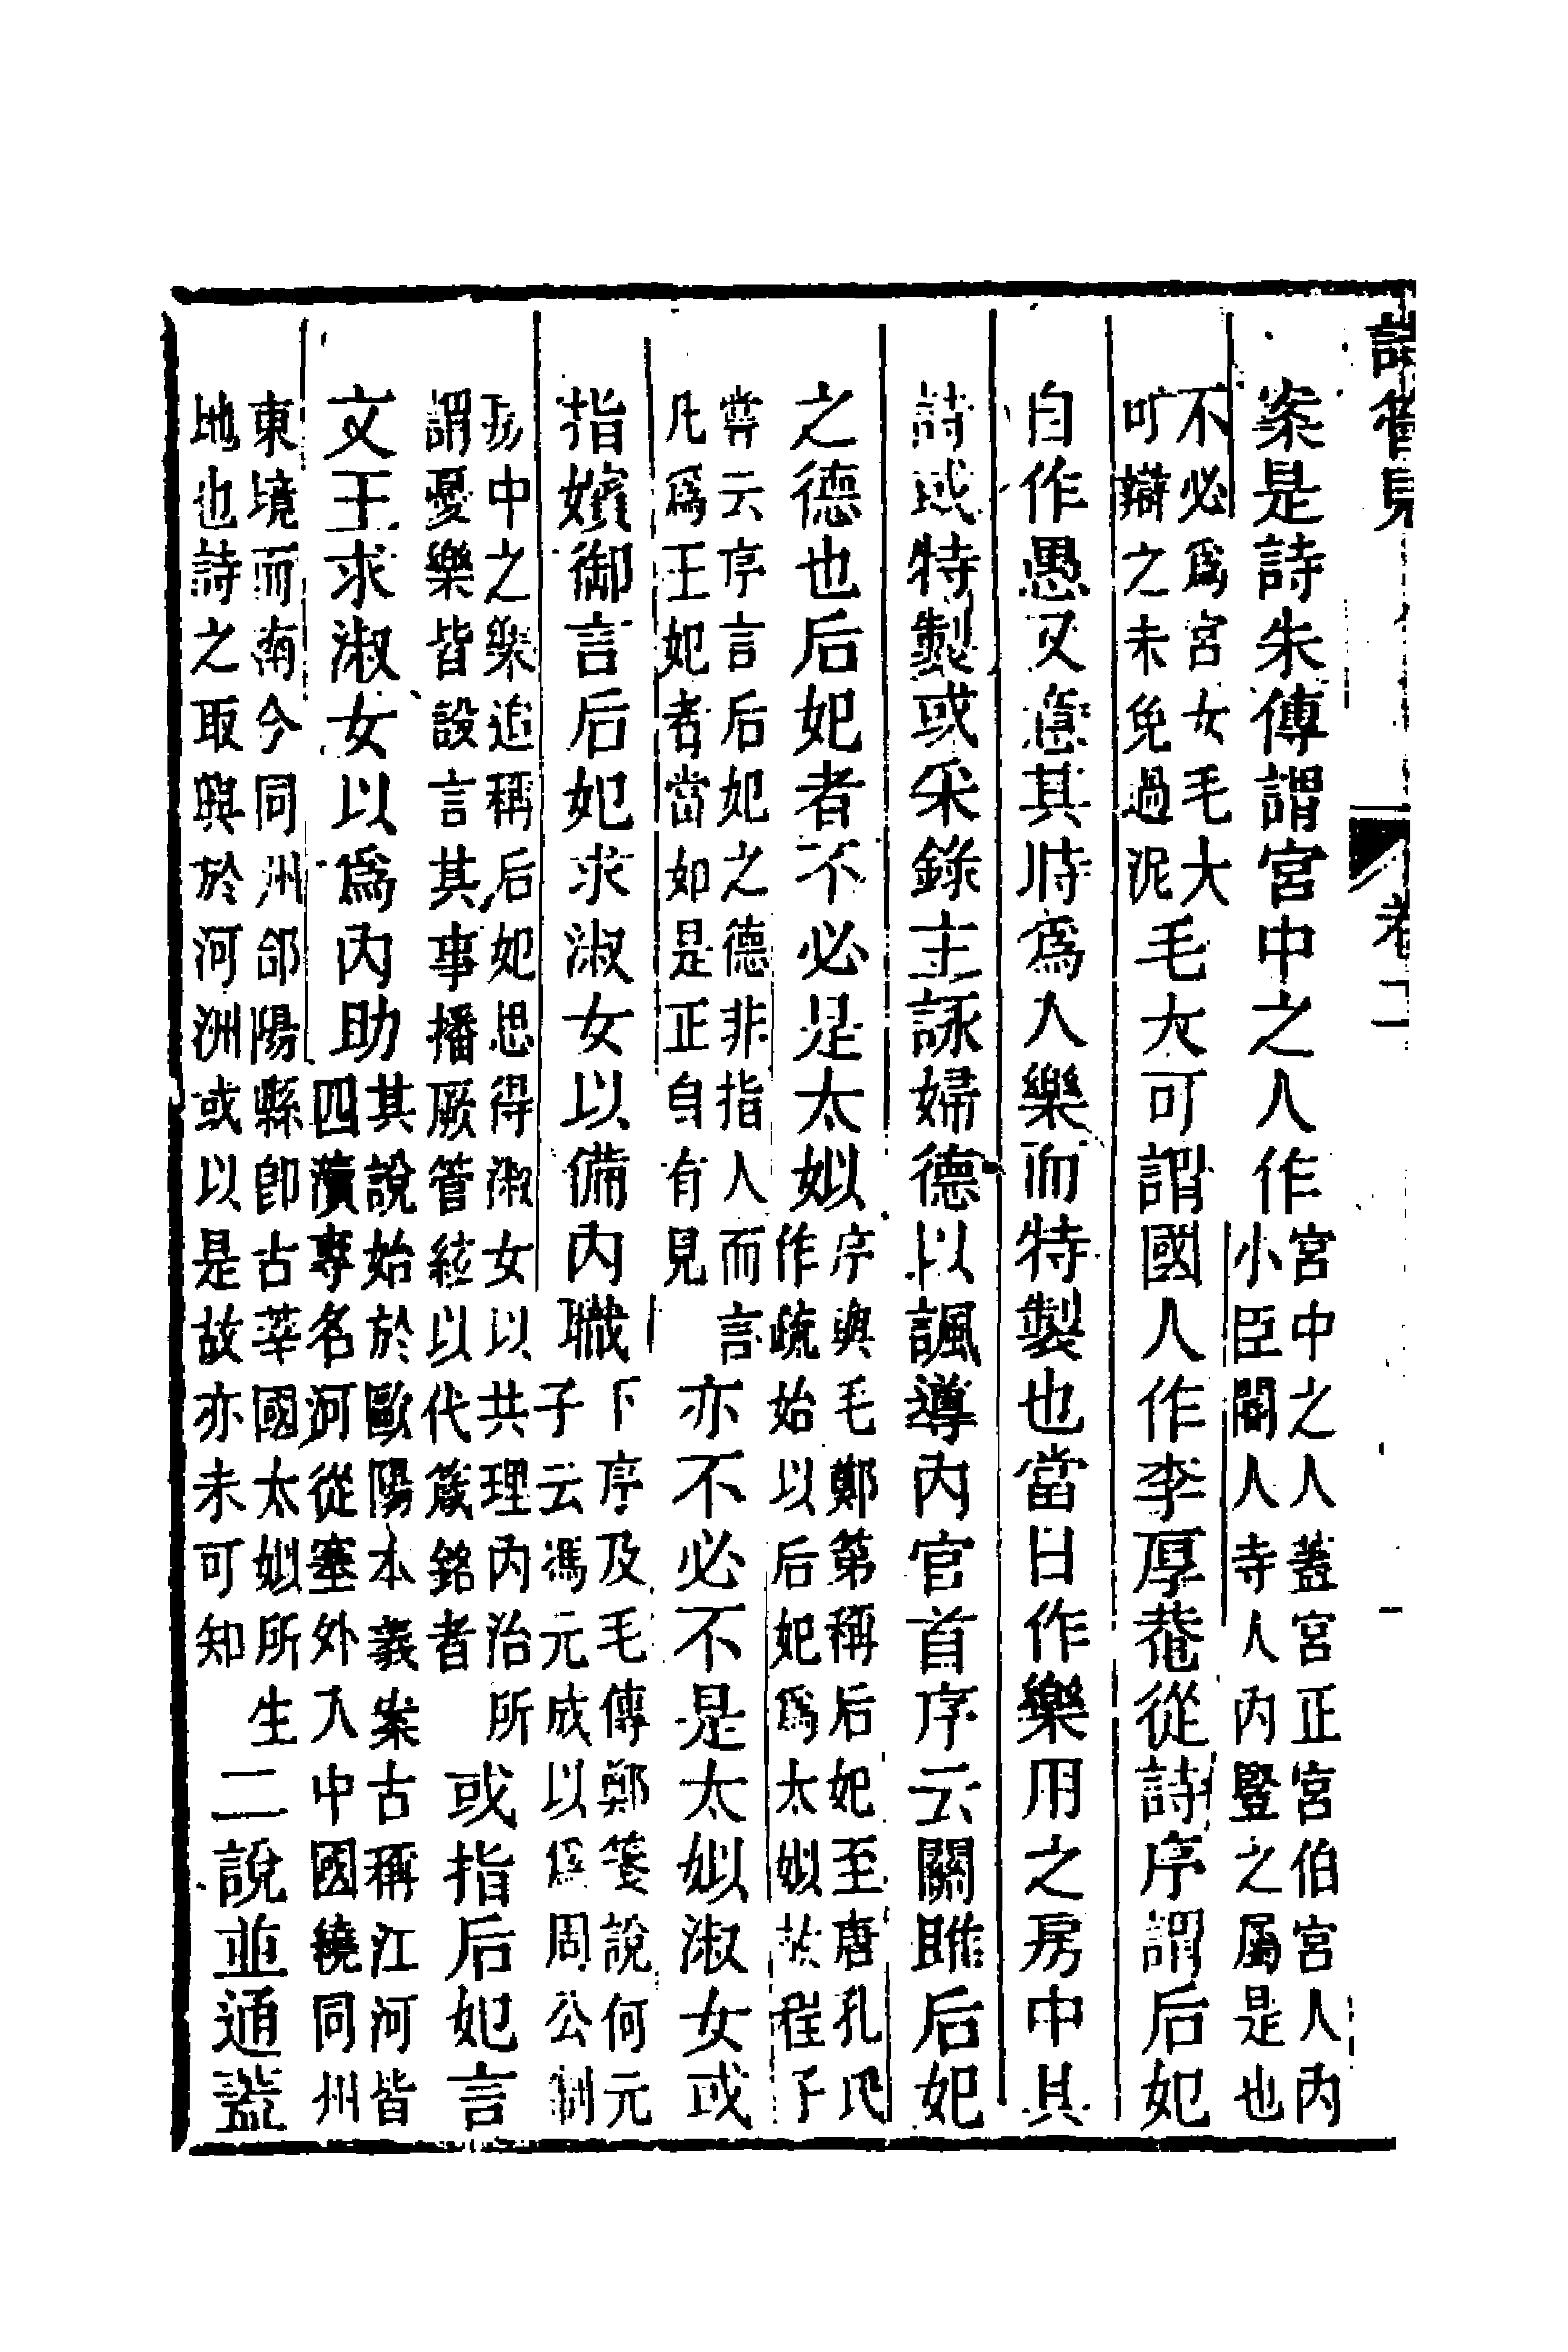 詩管見
卷一
案是詩朱傳謂宮中之人作宮中之人蓋宮正宮伯宮人內
小臣閽人寺人內豎之屬是也
不必爲宮女毛大
可辯之未免過泥毛大可謂國人作李厚菴從詩序謂后妃
自作愚又意其時爲人樂而特製也當日作樂用之房中其
詩或特製或采錄主詠婦德以諷導內官首序云關雎后妃
之德也后妃者不必是太姒序與毛鄭第稱后妃至唐孔氏
作疏始以后妃爲太姒程子
嘗云序言后妃之德非指人而言
凡爲王妃者當如是正自有見亦不必不是太姒淑女或
指嬪御言后妃求淑女以備內職下序及毛傳鄭箋說何元
子云馮元成以爲周公制
房中之樂追稱后妃思得淑女以共理內治所
謂憂樂皆設言其事播厥管絃以代箴銘者或指后妃言
文王求淑女以爲內助其說始於歐陽本義案古稱江河皆
四瀆專名河從塞外入中國繞同州
東境而南今同州郃陽縣卽古莘國太姒所生
地也詩之取興於河洲或以是故亦未可知二說並通蓋